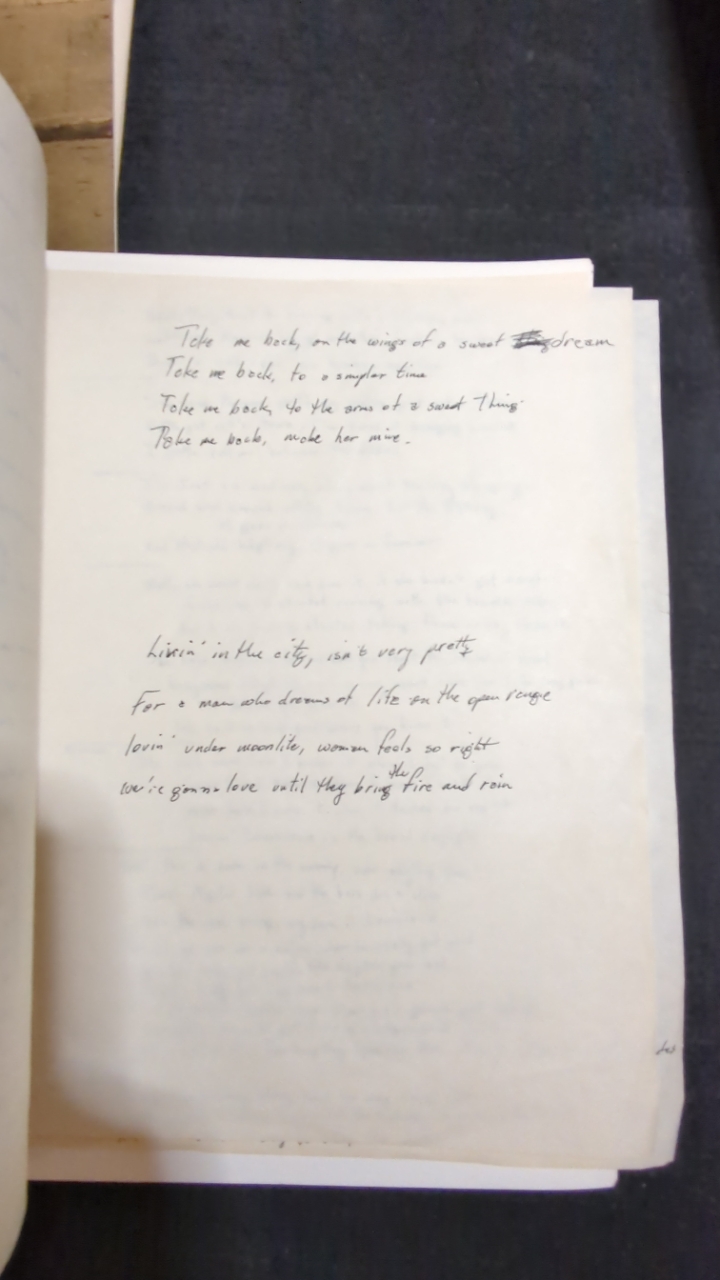 Take me back, on the wings of a sweet dream
Take me back, to a simpler time
Take me back, to the arms of a sweet thing
Take me back, make her mine.
Livin' in the city, isn't very pretty
For a man who dreams of life on the open range
lovin' under moonlite, woman feels so right
we're gonna love until they bring the fire and rain